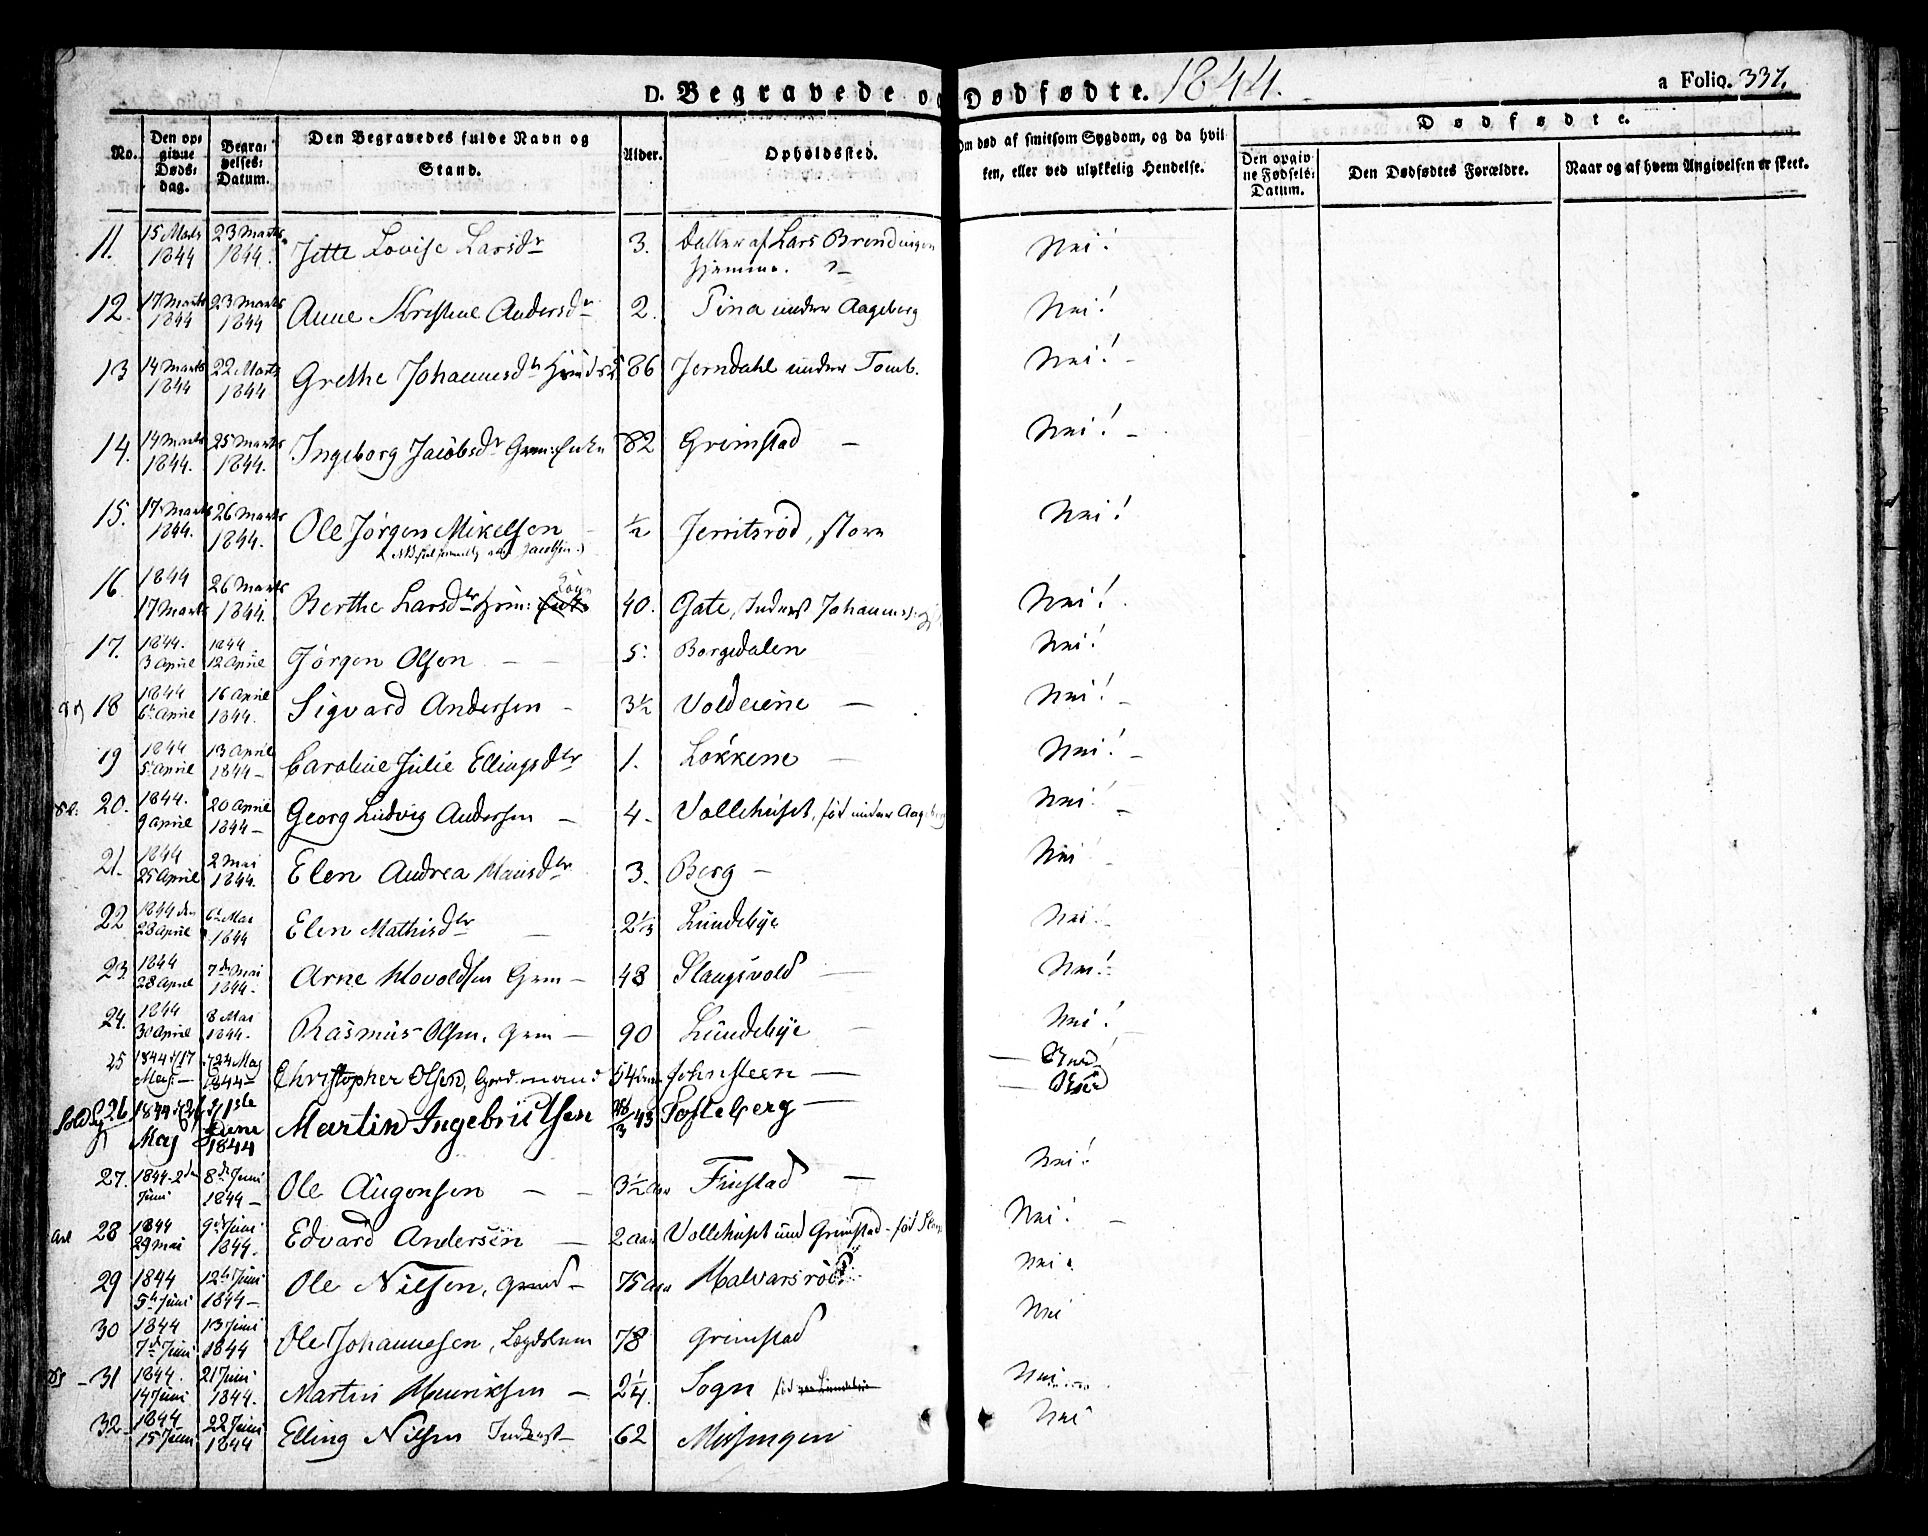 D. Begravede og Dødfødte. 1844.
a Folio. 337.
No.
Den opgivne Dødsdag.
Begravelses-Datum.
Den Begravedes fulde Navn og Stand.
Alder.
Opholdssted.
Om død af smitsom Sygdom, og da hvilken, eller ved ulykkelig Hendelse.
Dødfødte.
Den opgivne Fødsels-Datum.
Den Dødfødtes Forældre.
Naar og af hvem Angivelsen er skeet.
11. 15 Marts 1844 23 Marts 1844. Jette Lovise Larsdr 3. Datter af Lars Brendingen hjemme. Nei!
12. 17 Marts 1844 23 Marts 1844 Anne Kristine Andersdr 2. Tina under Aageberg Nei!
13 14 Marts 1844 22 Marts 1844 Grethe Johannesdtr 86 Jerndahl under Tomb. Nei! -
14. 14 Marts 1844. 25 Marts 1844. Ingeborg Jacobsdr Grm: Enke 82 Grimstad - Nei! -
15. 17 Marts 1844. 26 Marts 1844. Ole Jørgen Mikelsen ½ Jerritsrød, store Nei!
16 1844 17 Marts 26 Marts 1844. Berthe Larsdtr 40. Gate, Inderst Johannes Nei!
17. 1844. 3 April 1844 12 April Jørgen Olsen - - 5. Borgedalen Nei!
18 1844 6te April 16 April 1844. Sigvard Andersen - 3½ Voldeiene - Nei! -
19 1844 5 April 13 April 1844 - Caroline Julie Ellingsdtr 1. Løkkene - Nei! -
20. 1844. 9 April 20 April 1844 - Georg Ludvig Andersen - 4. Vollehuset, fød under Aageberg Nei! -
21. 1844 25 April 2 Mai 1844. Elen Andrea Hansdtr 3. Berg - Nei
22 1844 den 28 April 6te Mai 1844 Elen Mathisdtr - 2⅓ Lundebye Nei!
23 1844 28 April 7de Mai 1844. Arne Hovoldsen Grm - 48 Slangsvold - Nei!
24. 1844 30 April 8 Mai 1844. Rasmus Olsen, Grm - 90 Lundebye - Nei!
25 1844 d 17 Maj - 24 Maj 1844 Christopher Olsen, Gard mand 54 Johnsteen -
26 1844 Maj 1ste Juni 1844 Martin Ingebrigtsen Tofteberg -
27. 1844 - 2den Juni 8de Juni 1844 - Ole Augensen - - 3½ Aar Finstad - Nei!
28 1844 29 Mai 9de Juni 1844. Edvard Andersen - 2 aar Vollehuset und Grimstad - fød Nei! -
29 1844 5te Juni 12te Juni 1844 - Ole Nilsen, Grmd - 75 Aar Halvarsrød Nei
30 1844 7de Juni 13 Juni 1844 Ole Johannesen, Lægdslem 78 Grimstad Nei
31 1844. 14 Juni 21 Juni 1844. Martin Henriksen - 2¼ Sogn Nei
32 1844 15 Juni 22 Juni 1844 Elling Nilsen Inderst 62 Missingen Nei